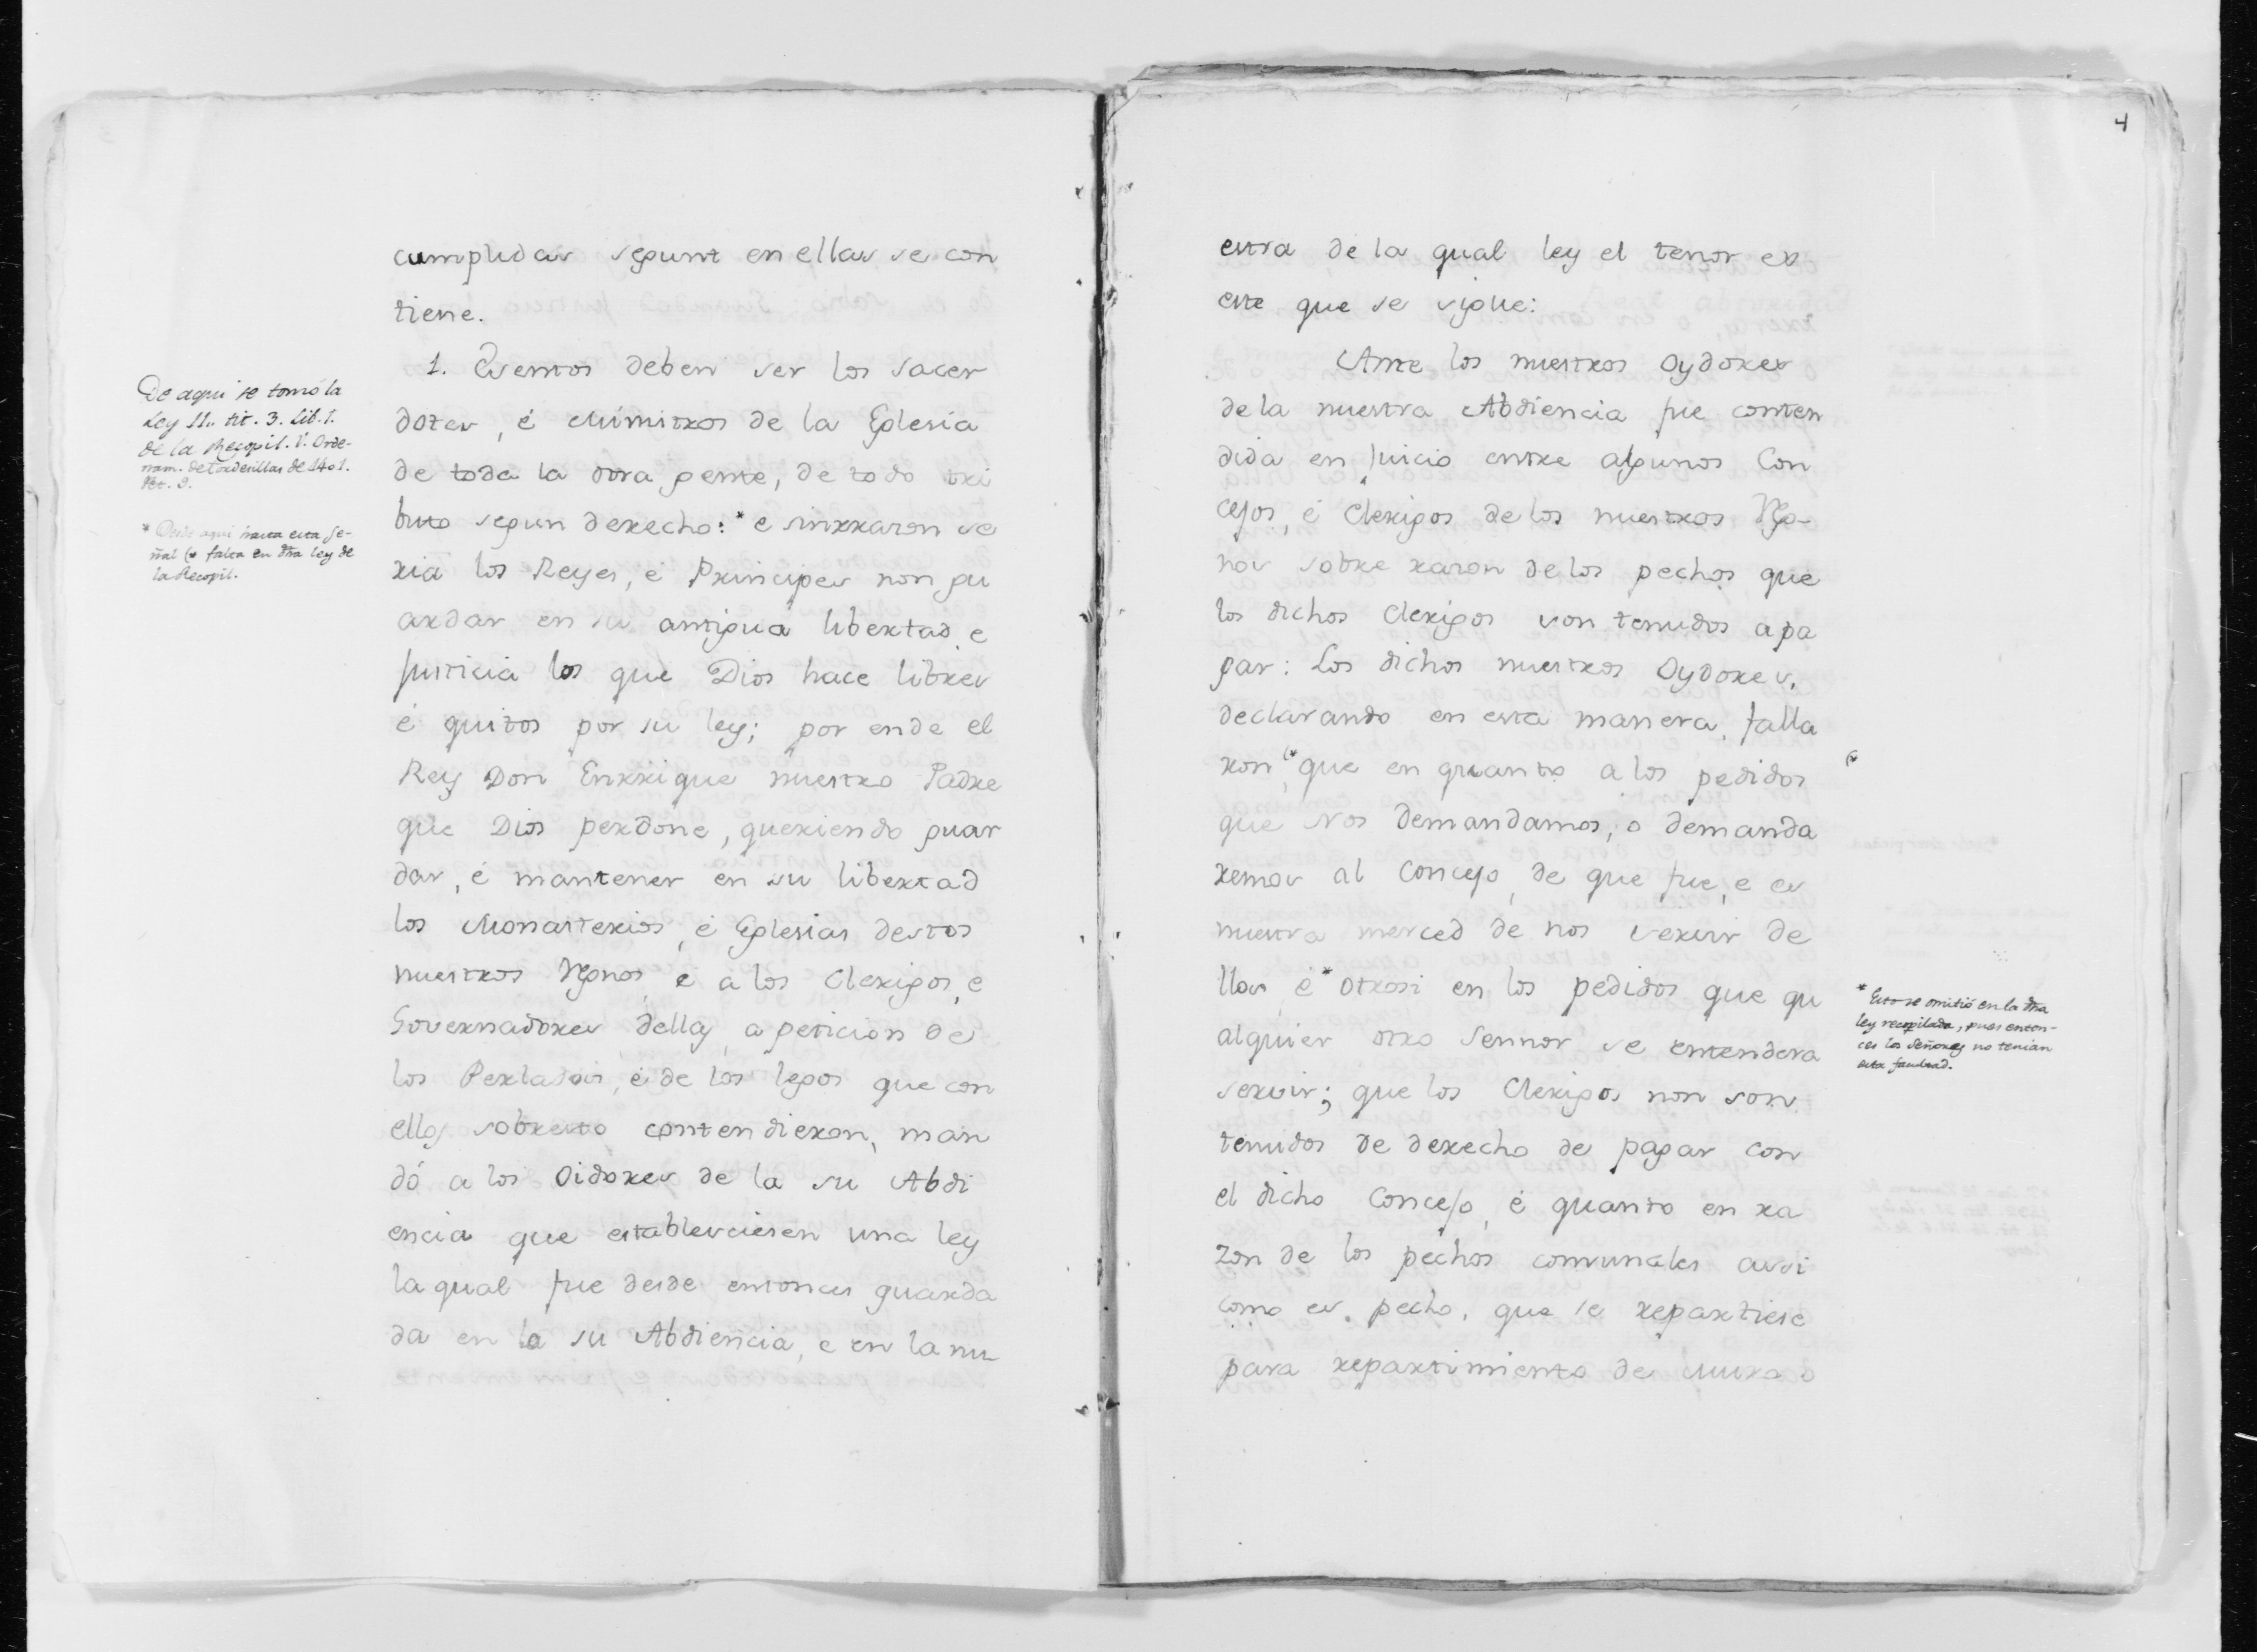 cumplidas segunt en ellas se con
tiene.
1. Esentos deben ser los sacer
dotes, é Ministros de la Eglesia
de toda la otra gente, de todo tri
buto segun derecho: * e sinrrazon se
ria los Reyes, é Principes non gu
ardar en su antigua libertad, e
justicia los que Dios hace libres
é quitos por su ley; por ende el
Rey Don Enrrique nuestro Padre
que Dios perdone, queriendo guar
dar, é mantener en su libertad
los Monasterios, é Eglesias destos
nuestros Rgnos, é a los Clerigos, e
Governadores dellas, a peticion de
los Perlados, é de los legos que con
ellos sobresto contendieron, man
dó a los Oidores de la su Abdi
encia que establesciesen una ley
la qual fue desde entonces guarda
da en la su Abdiencia, e en la nu
De aqui se tomó la
Ley 11. tit. 3. Lib. 1.
de la Recopil. V. Orde-
nam. de Tordesillas de 1401.
Pet. 9.
* Desde aqui hasta esta se-
ñal (* falta en dha ley de
la Recopil.
4
estra de la qual ley el tenor es
este que se sigue:
Ante los nuestros Oydores
de la nuestra Abdiencia fue conten
dida en juicio entre algunos Con
cejos, é Clerigos de los nuestros Rgo-
nos sobre razon de los pechos que
los dichos Clerigos son tenudos a pa
gar: Los dichos nuestros Oydores,
declarando en esta manera, falla
ron, (* que en quanto a los pedidos
que Nos demandamos, o demanda
remos al Concejo, de que fue, e es
nuestra merced de nos servir de
llos é * otrosi en los pedidos que qu
alquier otro Sennor se entendera
servir; que los Clerigos non son
tenudos de derecho de pagar con
el dicho Concejo, é quanto en ra
zon de los pechos comunales assi
como es, pecho, que se repartiese
para repartimiento de Muro o
(*
* Esto se omitió en la dha
ley recopilada, pues enton-
ces los Señores no tenian
esta facultad.